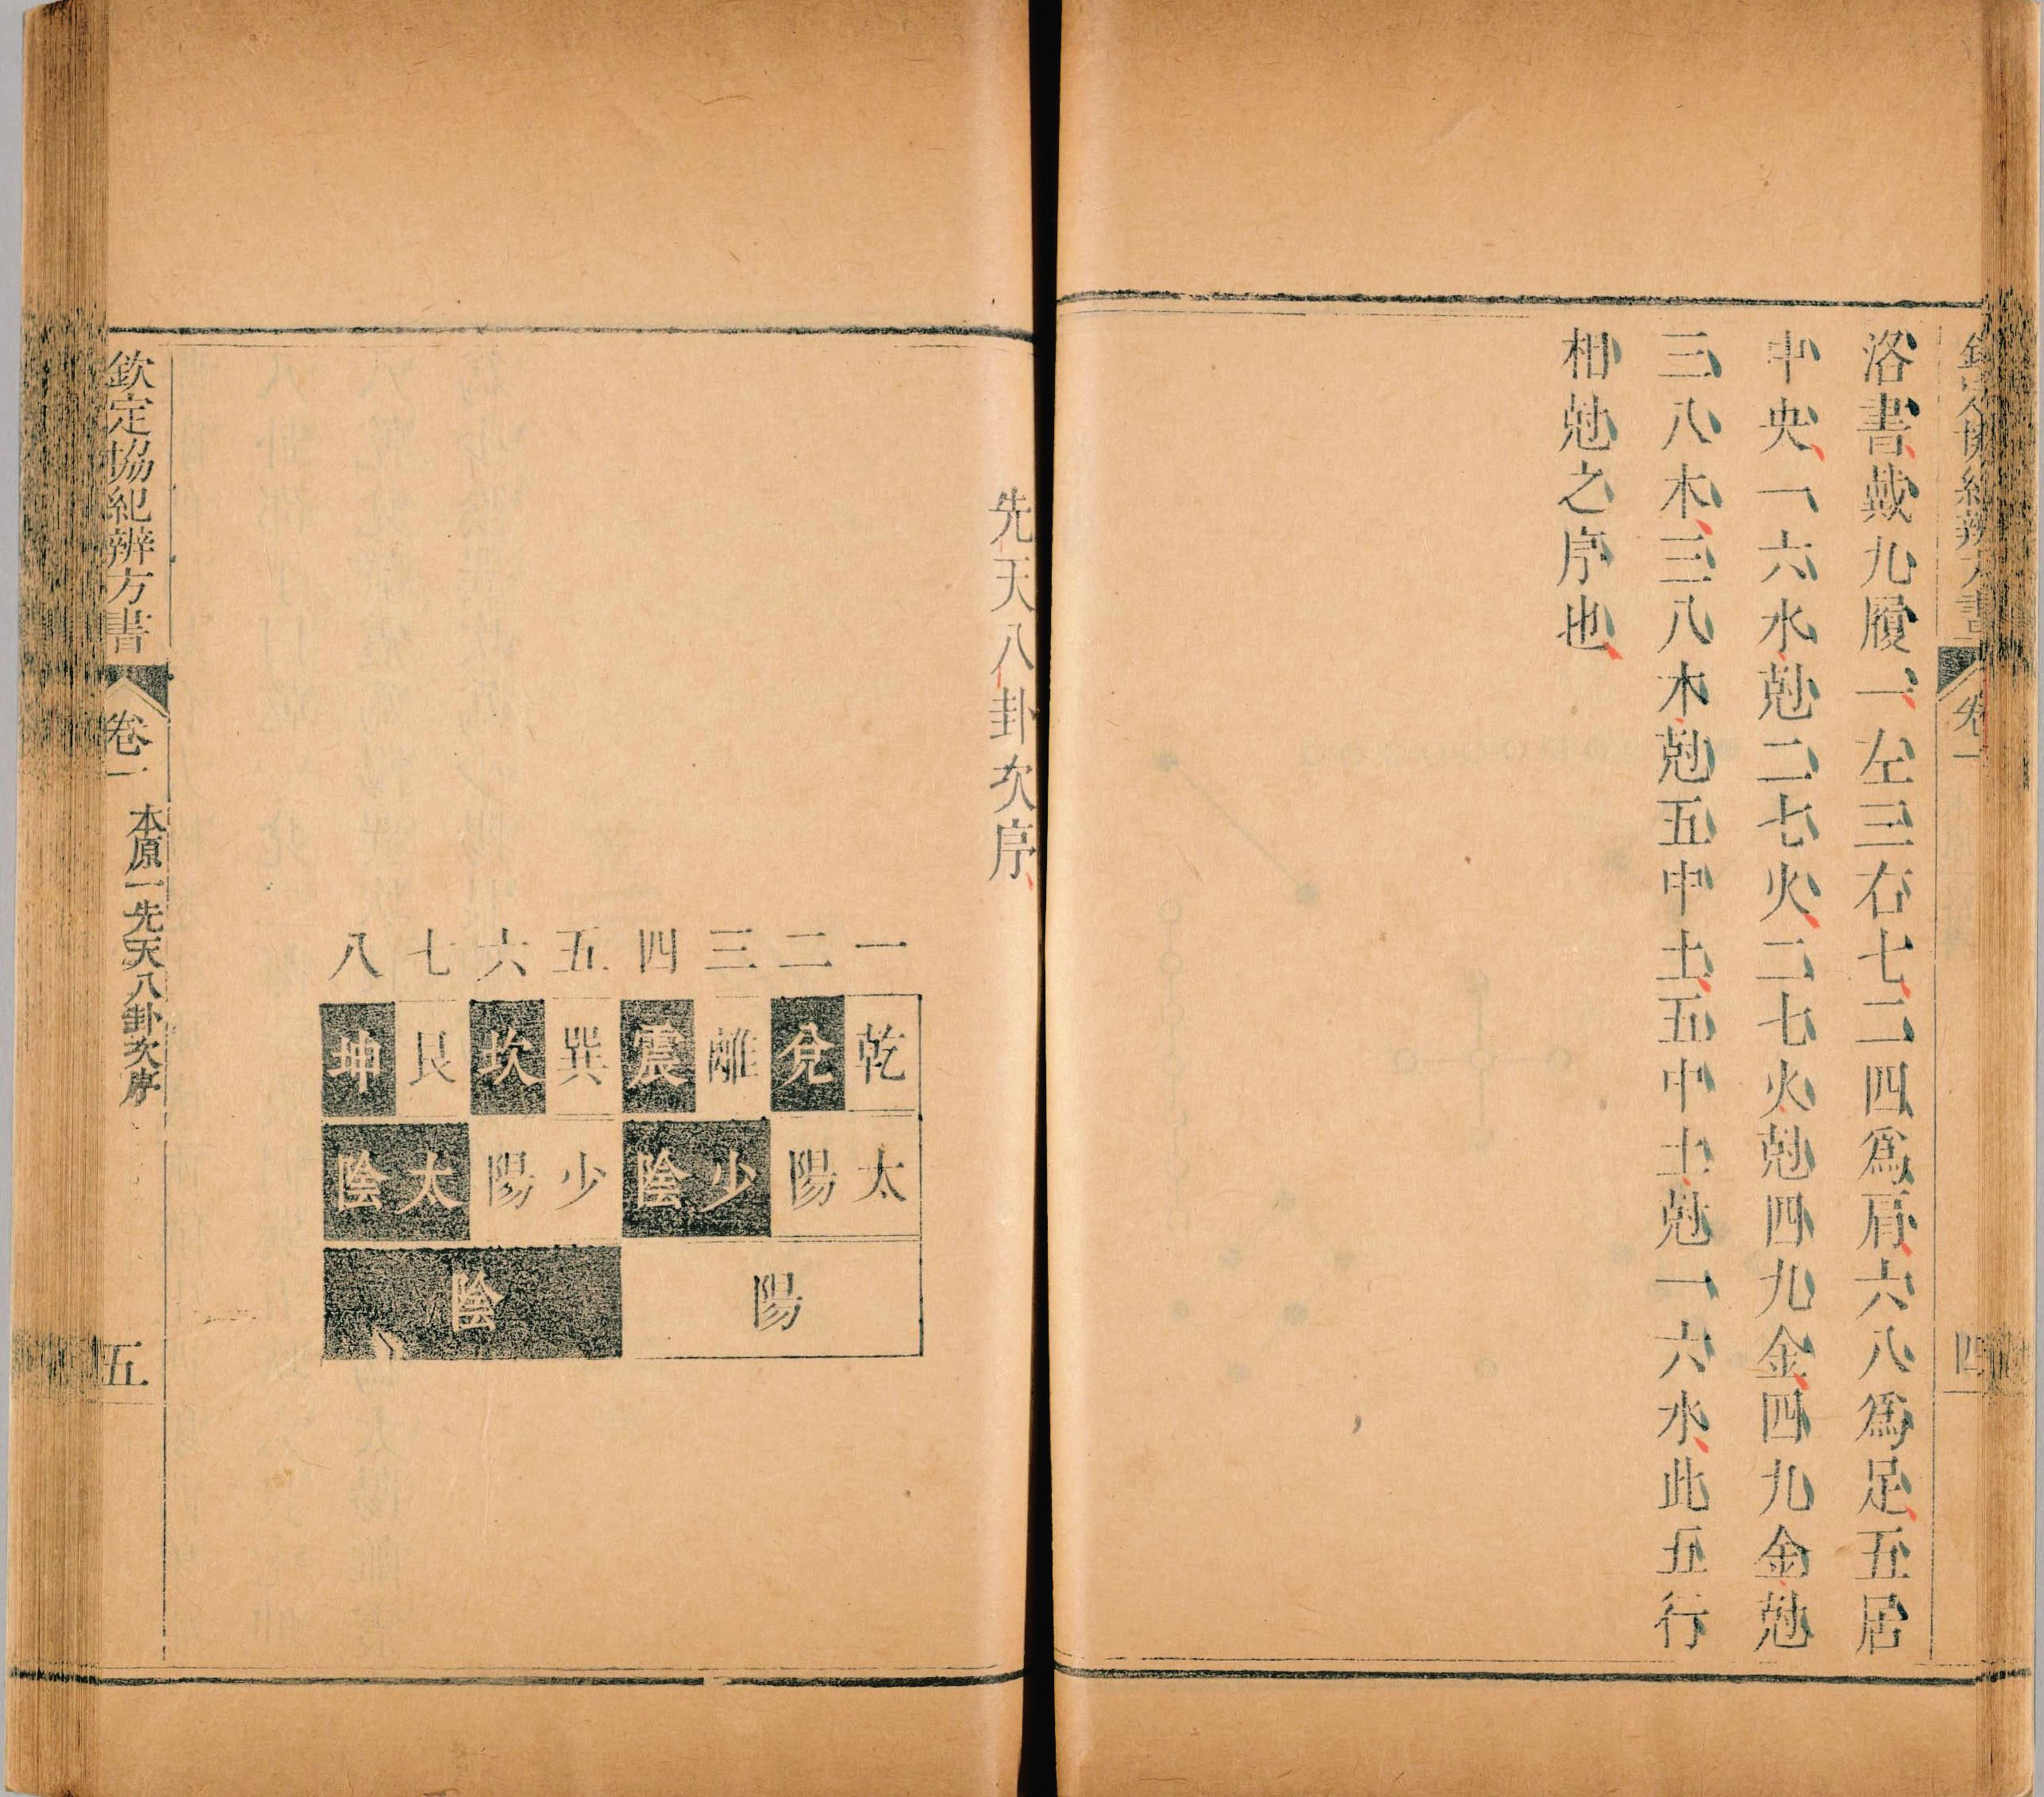 洛書戴九履一、左三右七、二四爲肩、六八爲足、五居
中央、一六水、尅二七火、二七火尅四九金、四九金尅
三八木、三八木尅五中土、五中土尅一六水、此五行
相尅之序也、
卷一
四
先天八卦次序、
一 二 三 四 五 六 七 八
乾 兌 離 震 巽 坎 艮 坤
太陽 少陰 少陽 太陰
陽 陰
欽定協紀辨方書 卷一 本原一先天八卦次序 五